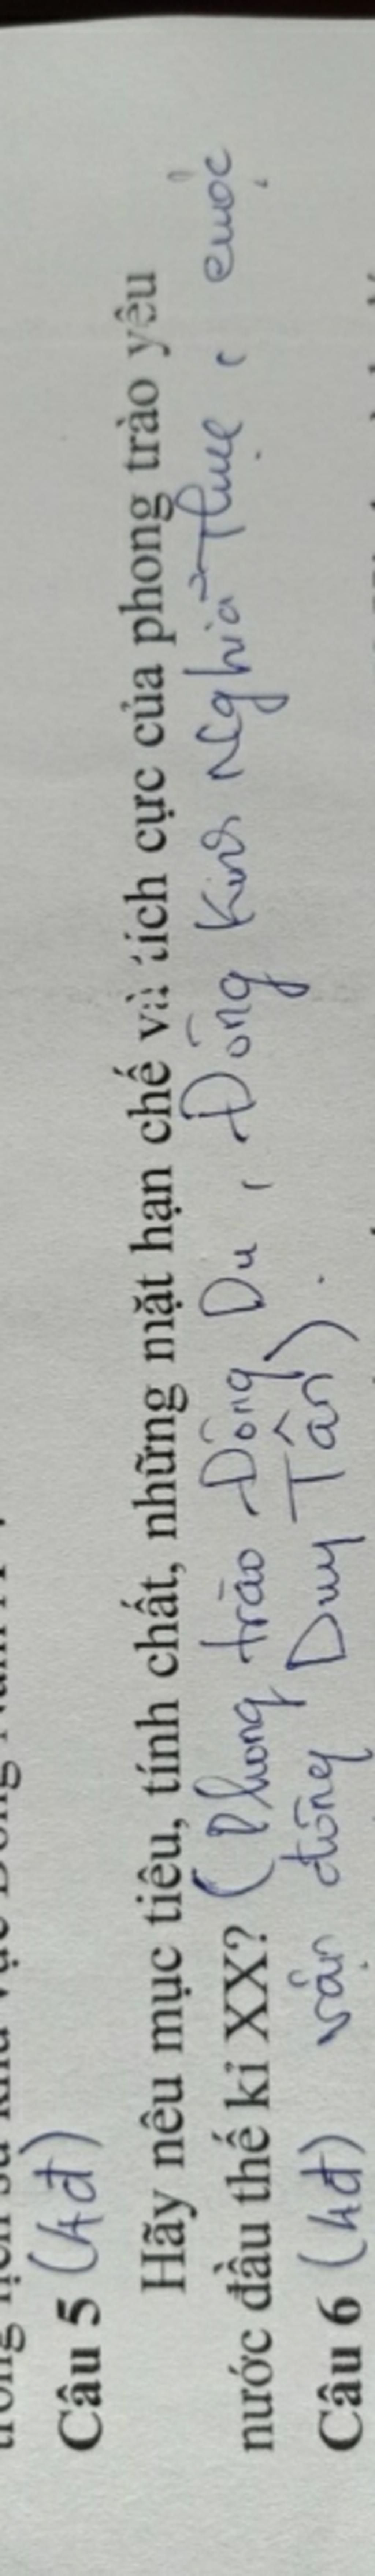 Câu 5 (4đ)
Hãy nêu mục tiêu, tính chất, những mặt hạn chế và tích cực của phong trào yêu
nước đầu thế kỉ XX? (Phong trào Đông Du, Đông Kinh Nghĩa Thục, cuộc
vận động Duy Tân).
Câu 6 (4đ)